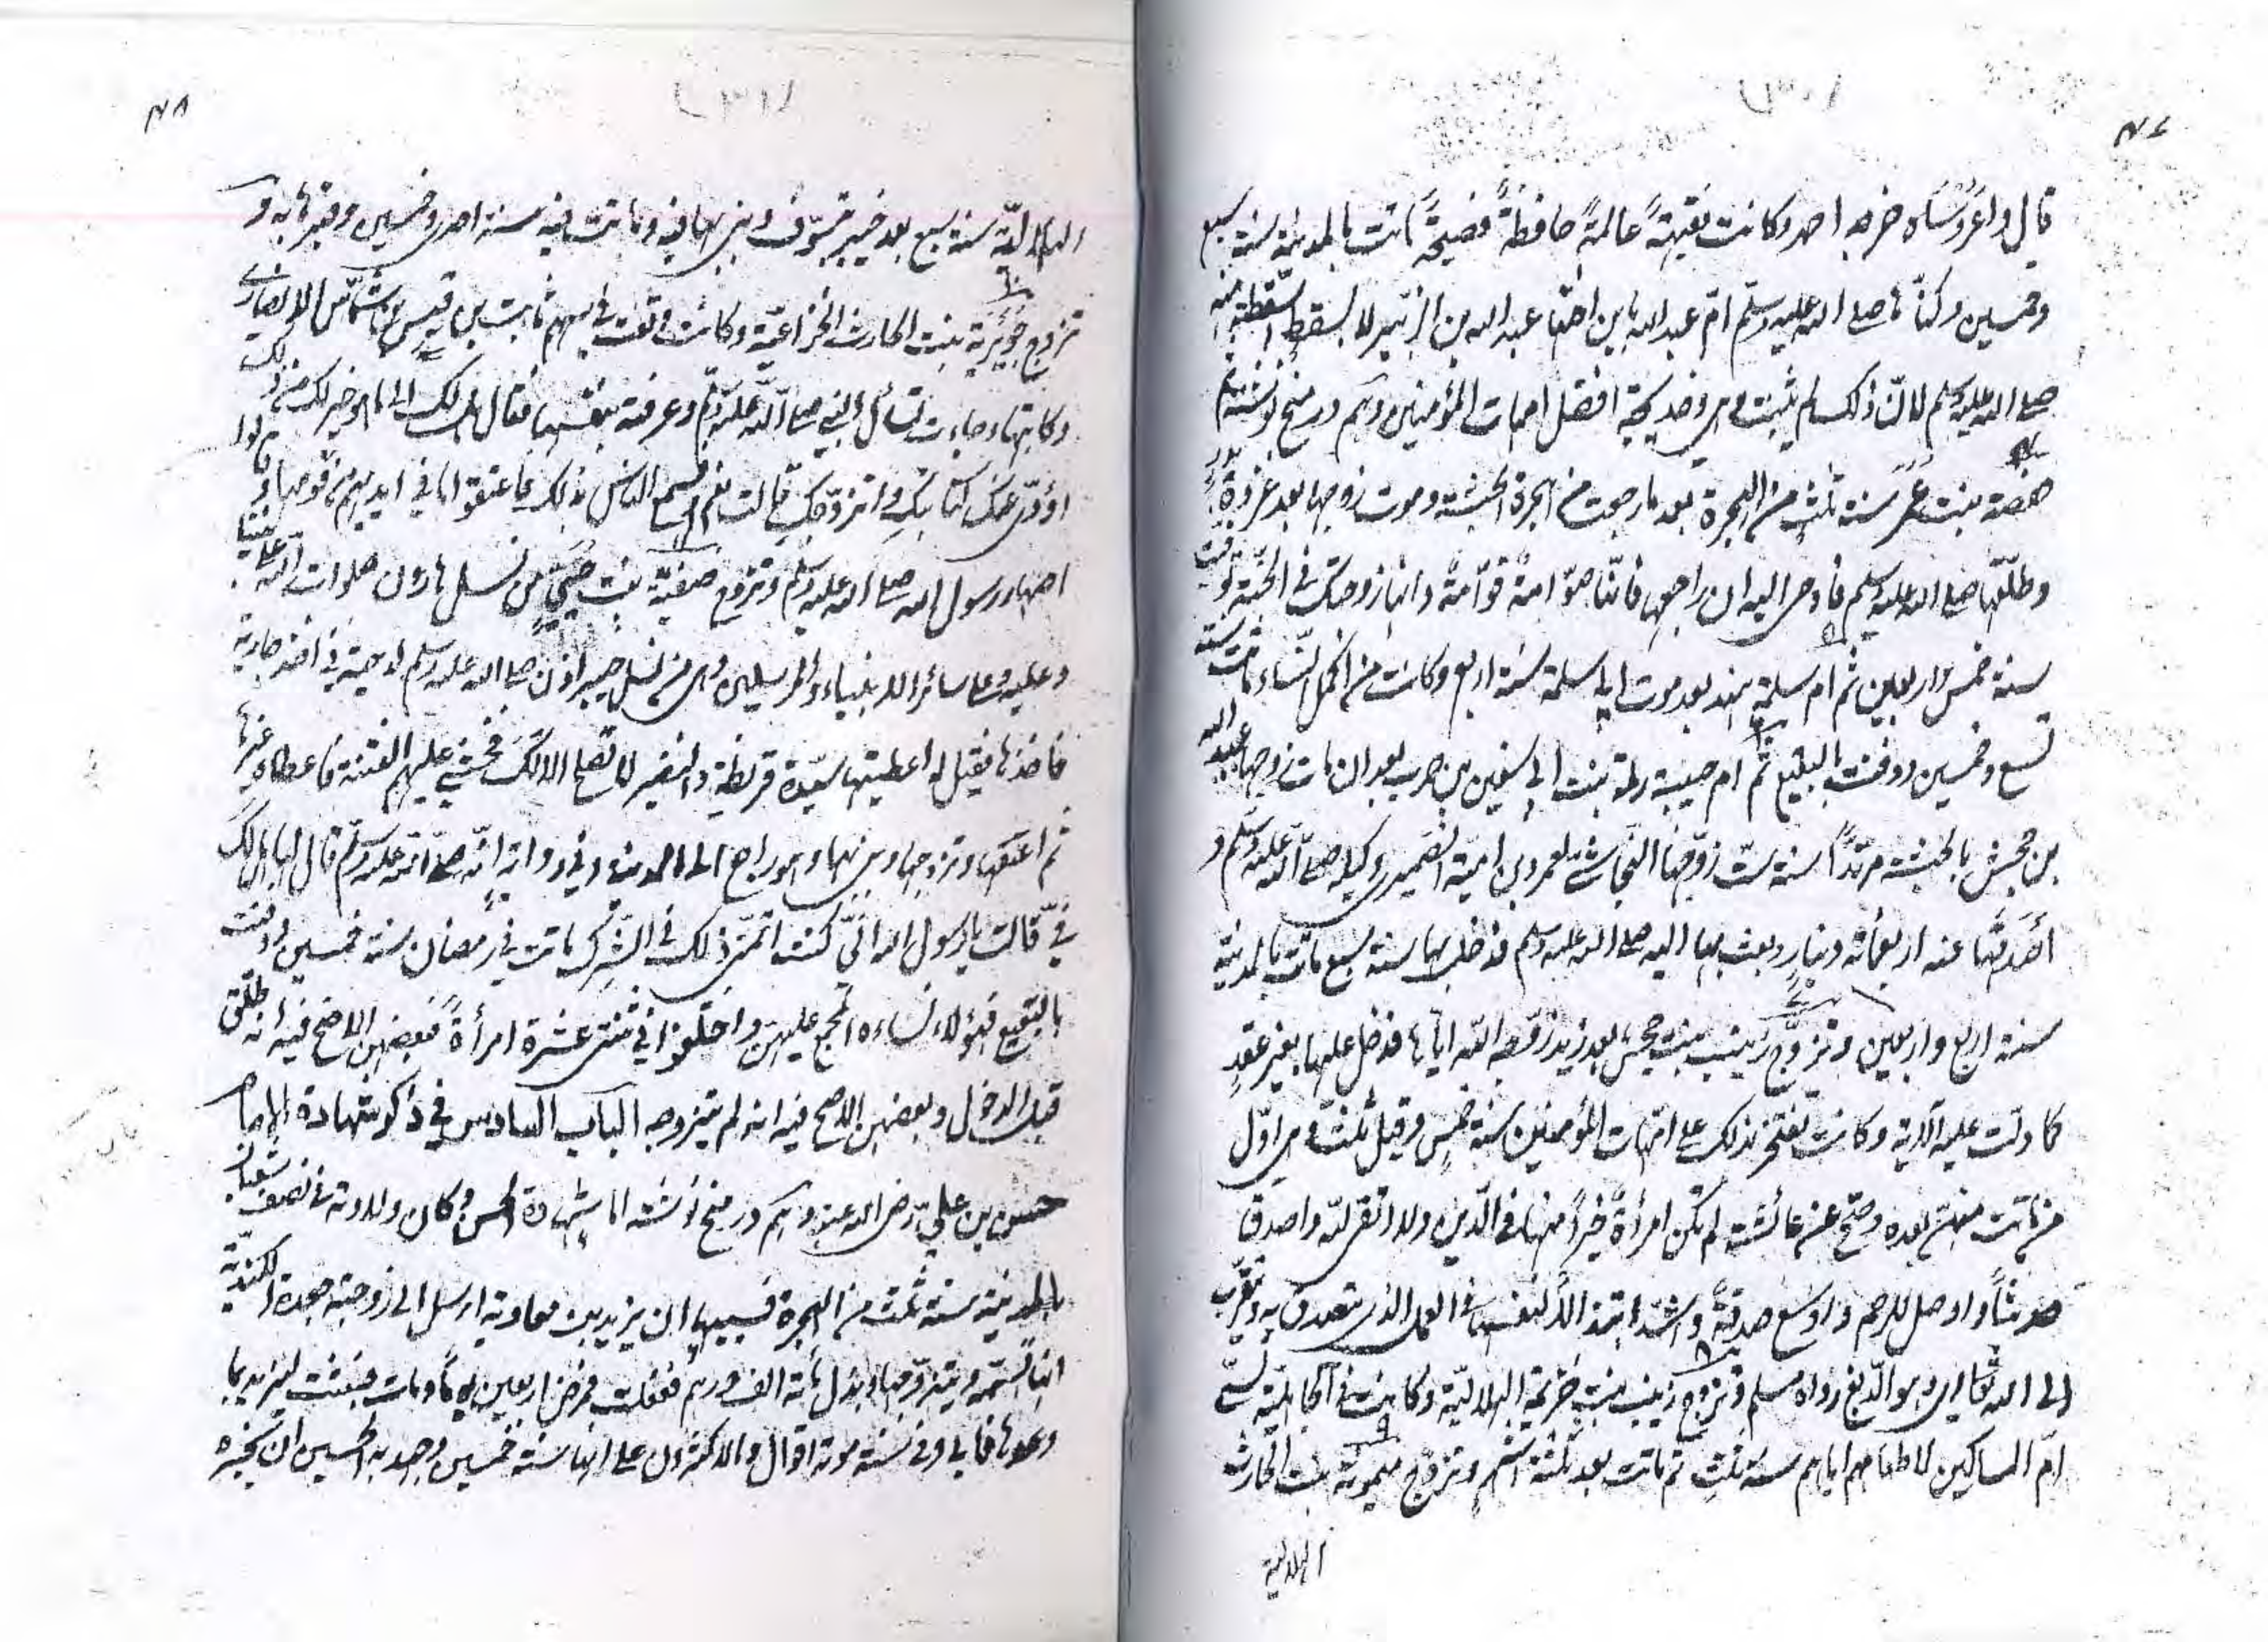 (٣٠)
٤٧
قال واعروساه خرجه احمد وكانت فقيهة عالمة حافظة فصيحة ماتت بالمدينة سنة سبع
وخمسين وكناها صلى الله عليه وسلم ام عبد الله بابن اختها عبد الله بن الزبير لا بسقط اسقطته منه
صلى الله عليه وسلم لان ذلك لم يثبت وهى وخديجة افضل امهات المؤمنين وهم در منح نوشته ثم
حفصة بنت عمر سنة ثلث من الهجرة بعد ما رجعت من الهجرة الحبشة وموت زوجها بعد غزوة بدر
وطلقها صلى الله عليه وسلم فأوحى اليه ان راجعها فانها صوّامة قوّامة وانها زوجتك فى الجنة توفيت
سنة خمس واربعين ثم ام سلمة هند بعد موت ابى سلمة سنة اربع وكانت من اكمل النساء ماتت سنة
تسع وخمسين ودفنت بالبقيع ثم ام حبيبة رملة بنت ابى سفين بن حرب بعد ان مات زوجها عبيد الله
بن جحش بالحبشة مرتدًا سنة ست زوّجها النجاشى لعمرو بن امية الضميرى وكيله صلى الله عليه وسلم و
أصدقها عنه اربعمائة دينار وبعث بها اليه صلى الله عليه وسلم فدخل بها سنة سبع ماتت بالمدينة
سنة اربع واربعين وتزوّج زينب بنت جحش بعد زيد زوّجه الله اياها فدخل عليها بغير عقد
كما دلت عليه الآية وكانت تفتخر بذلك على امهات المؤمنين سنة خمس وقيل ثلث وهى اوّل
من ماتت منهن بعده وصح عن عائشة لم تكن امرأة خيرًا منها فى الدين ولا اتقى لله واصدق
حديثًا واوصل للرحم واوسع صدقة واشد ابتذالا لنفسها فى العمل الذى يتصدق به ويتقرب
الى الله تعالى رواه مسلم وتزوج زينب بنت خزيمة الهلالية وكانت فى الجاهلية تسمى
ام المساكين لاطعامهم اياهم سنة ثلث ثم ماتت بعد ثلثة اشهر وتزوج ميمونة بنت الحارث
الهلالية
(٣١)
٤٨
الهلالية سنة سبع بعد خيبر بسرف وبنى بها فيه وماتت فيه سنة احدى وخمسين وقبرها به و
تزوج جويرية بنت الحارث الخزاعية وكانت وقعت فى سهم ثابت بن قيس بن شماس الانصارى
وكاتبها وجاءت تسأل النبى صلى الله عليه وسلم وعرفته بنفسها فقال هل لك الى ما هو خير لك من ذلك
اؤدى عنك كتابتك واتزوجك قالت نعم فسمع الناس بذلك فاعتقوا ما فى ايديهم من قومها وقالوا
اصهار رسول الله صلى الله عليه وسلم وتزوج صفية بنت حيى من نسل هارون صلوات الله على نبينا
وعليه وعلى سائر الانبياء والمرسلين وهى من نسل خيبر اذن صلى الله عليه وسلم لدحية فى اخذ جارية
فاخذها فقيل له اعطيتها سيّدة قريظة والنضير لا تصلح الا لك فخشى عليهم الفتنة فاعطاه غيرها
ثم اعتقها وتزوجها وبنى بها وهو راجع الى المدينة وفى رواية انه صلى الله عليه وسلم قال لها هل لك
فىّ قالت يا رسول الله انى كنت اتمنى ذلك فى الشرك ماتت فى رمضان سنة خمسين ودفنت
بالبقيع فهؤلاء نساءه المجمع عليهن واختلفوا فى ثنتى عشرة امرأة فبعضهن الاصح فيه انه طلقن
قبل الدخول وبعضهن الاصح فيه انه لم يتزوجه الباب السادس فى ذكر شهادة الامام
حسن بن على رضى الله عنه وهم در منح نوشته اما شهادة الحسن وكان ولادته فى نصف شعبان
بالمدينة سنة ثلث من الهجرة فسببها ان يزيد بن معاوية ارسل الى زوجته جعدة الكندية
انها تسمّه ويتزوجها وبذل مائة الف درهم ففعلت فمرض اربعين يوما ومات فبعثت ليزيد بما
وعدها فابى وفى سنة موته اقوال والاكثرون على انها سنة خمسين وجهد به الحسين ان يخبره